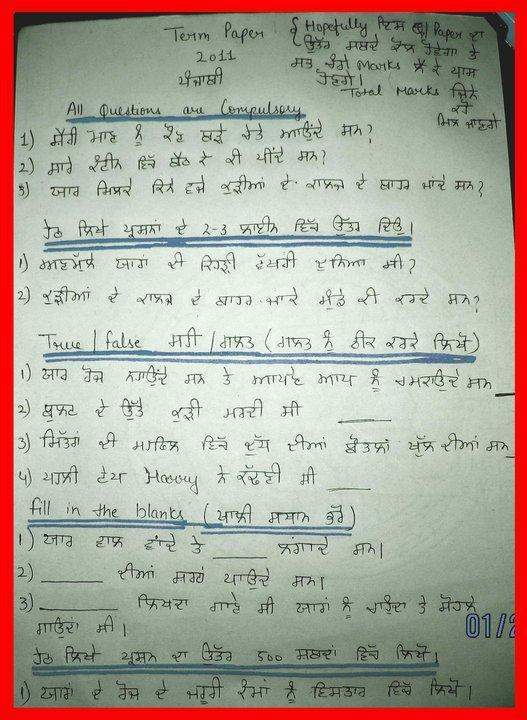 Term Paper
2011
ਪੰਜਾਬੀ
{ Hopefully ਇਸ Paper ਦਾ
ਉੱਤਰ ਸਬਦੇ ਕੋਲ ਹੋਵੇਗਾ ਤੇ
ਸਬ ਚੰਗੇ Marks ਲੈ ਕੇ ਪਾਸ
ਹੋਣਗੇ।
Total Marks ਜਿੰਨੇ
ਕਹੋ
ਮਿਲ ਜਾਣਗੇ
All Questions are Compulsory
1) ਸੈਰੀ ਮਾਣ ਨੂੰ ਕੌਣ ਬੜੇ ਚੇਤੇ ਆਉਂਦੇ ਸਨ?
2) ਸਾਰੇ ਕੰਟੀਨ ਵਿੱਚ ਬੈਠ ਕੇ ਕੀ ਪੀਂਦੇ ਸਨ?
3) ਯਾਰ ਮਿਲਕੇ ਕਿੰਨੇ ਵਜੇ ਕੁੜੀਆਂ ਦੇ ਕਾਲਜ ਦੇ ਬਾਹਰ ਜਾਂਦੇ ਸਨ?
ਹੇਠ ਲਿਖੇ ਪ੍ਰਸ਼ਨਾਂ ਦੇ 2-3 ਲਾਈਨ ਵਿੱਚ ਉੱਤਰ ਦਿਓ।
1) ਅਣਮੁੱਲੇ ਯਾਰਾਂ ਦੀ ਕਿਹੜੀ ਵੱਖਰੀ ਦੁਨਿਆ ਸੀ?
2) ਕੁੜੀਆਂ ਦੇ ਕਾਲਜ ਦੇ ਬਾਹਰ ਜਾਕੇ ਮੁੰਡੇ ਕੀ ਕਰਦੇ ਸਨ?
True/false ਸਹੀ/ਗਲਤ (ਗਲਤ ਨੂੰ ਠੀਕ ਕਰਕੇ ਲਿਖੋ)
1) ਯਾਰ ਰੋਜ਼ ਨਹਾਉਂਦੇ ਸਨ ਤੇ ਆਪਣੇ ਆਪ ਨੂੰ ਚਮਕਾਉਂਦੇ ਸਨ __
2) ਬੁਲਟ ਦੇ ਉੱਤੇ ਕੁੜੀ ਮਰਦੀ ਸੀ ____
3) ਮਿੱਤਰਾਂ ਦੀ ਮਹਫਿਲ ਵਿੱਚ ਦੁੱਧ ਦੀਆਂ ਬੋਤਲਾਂ ਖੁੱਲਦੀਆਂ ਸਨ __
4) ਪਹਲੀ ਟੇਪ Harry ਨੇ ਕੱਢਣੀ ਸੀ ____
fill in the blanks (ਖਾਲੀ ਸਥਾਨ ਭਰੋ)
1) ਯਾਰ ਵਾਲ ਵਾਂਦੇ ਤੇ ____ ਲਗਾਂਦੇ ਸਨ।
2) ______ ਦੀਆਂ ਸ਼ਰਟਾਂ ਪਾਉਂਦੇ ਸਨ।
3) ______ ਲਿਖਦਾ ਗਾਣੇ ਸੀ ਯਾਰਾਂ ਨੂੰ ਚਾਹੁੰਦਾ ਤੇ ਸੋਹਲੇ
ਗਾਉਂਦਾ ਸੀ।
01/2
ਹੇਠ ਲਿਖੇ ਪ੍ਰਸ਼ਨ ਦਾ ਉੱਤਰ 500 ਸ਼ਬਦਾਂ ਵਿੱਚ ਲਿਖੋ।
1) ਯਾਰਾਂ ਦੇ ਰੋਜ਼ ਦੇ ਜ਼ਰੂਰੀ ਕੰਮਾਂ ਨੂੰ ਵਿਸਤਾਰ ਵਿੱਚ ਲਿਖੋ।